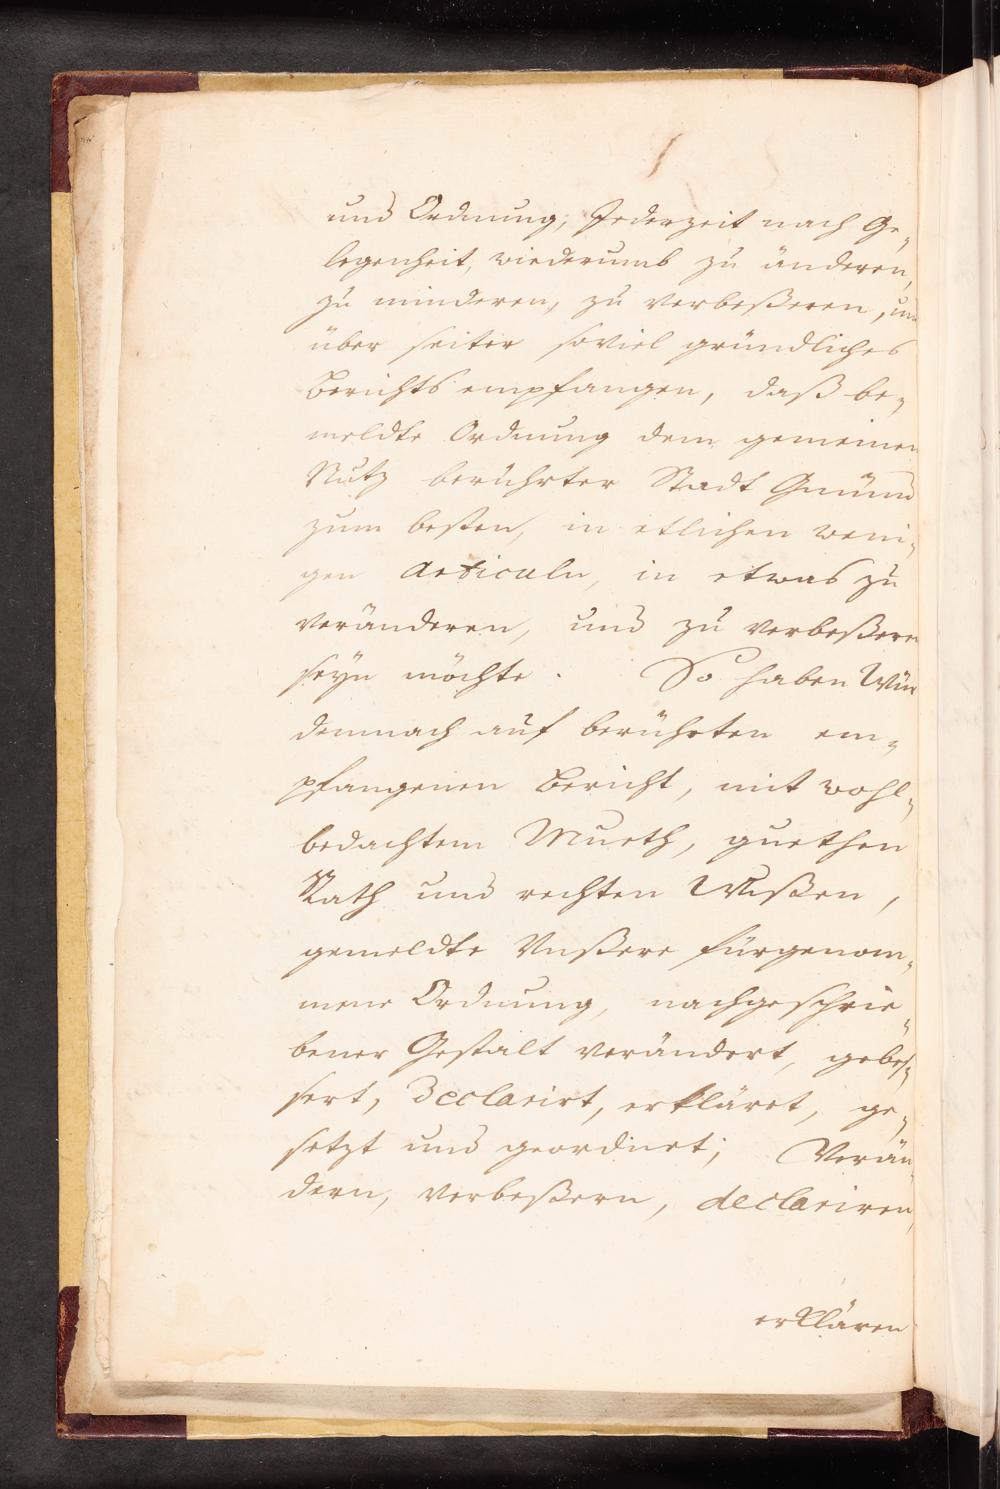 und Ordnung, Jederzeit nach Ge-
legenheit, wiederumb zu änderen,
zu minderen, zu verbeßeren, und
über seiter soviel gründliches
Berichts empfangen, daß be-
meldte Ordnung dem gemeinen
Nutz berührter Stadt Gmünd
zum besten, in etlichen weni-
gen Articuln, in etwas zu
veränderen, und zu verbeßeren
seyn möchte. So haben Wür
demnach auf berührten em-
pfangenen Bericht, mit wohl-
bedachtem Mueth, guethen
Rath und rechten Wißen,
gemeldte Vnßere fürgenom-
mene Ordnung, nachgeschrie-
bener Gestalt verändert, gebes-
sert, Declarirt, erkläret, ge-
setzt und geordnet; Verän-
dern, verbeßern, declariren,
erklären